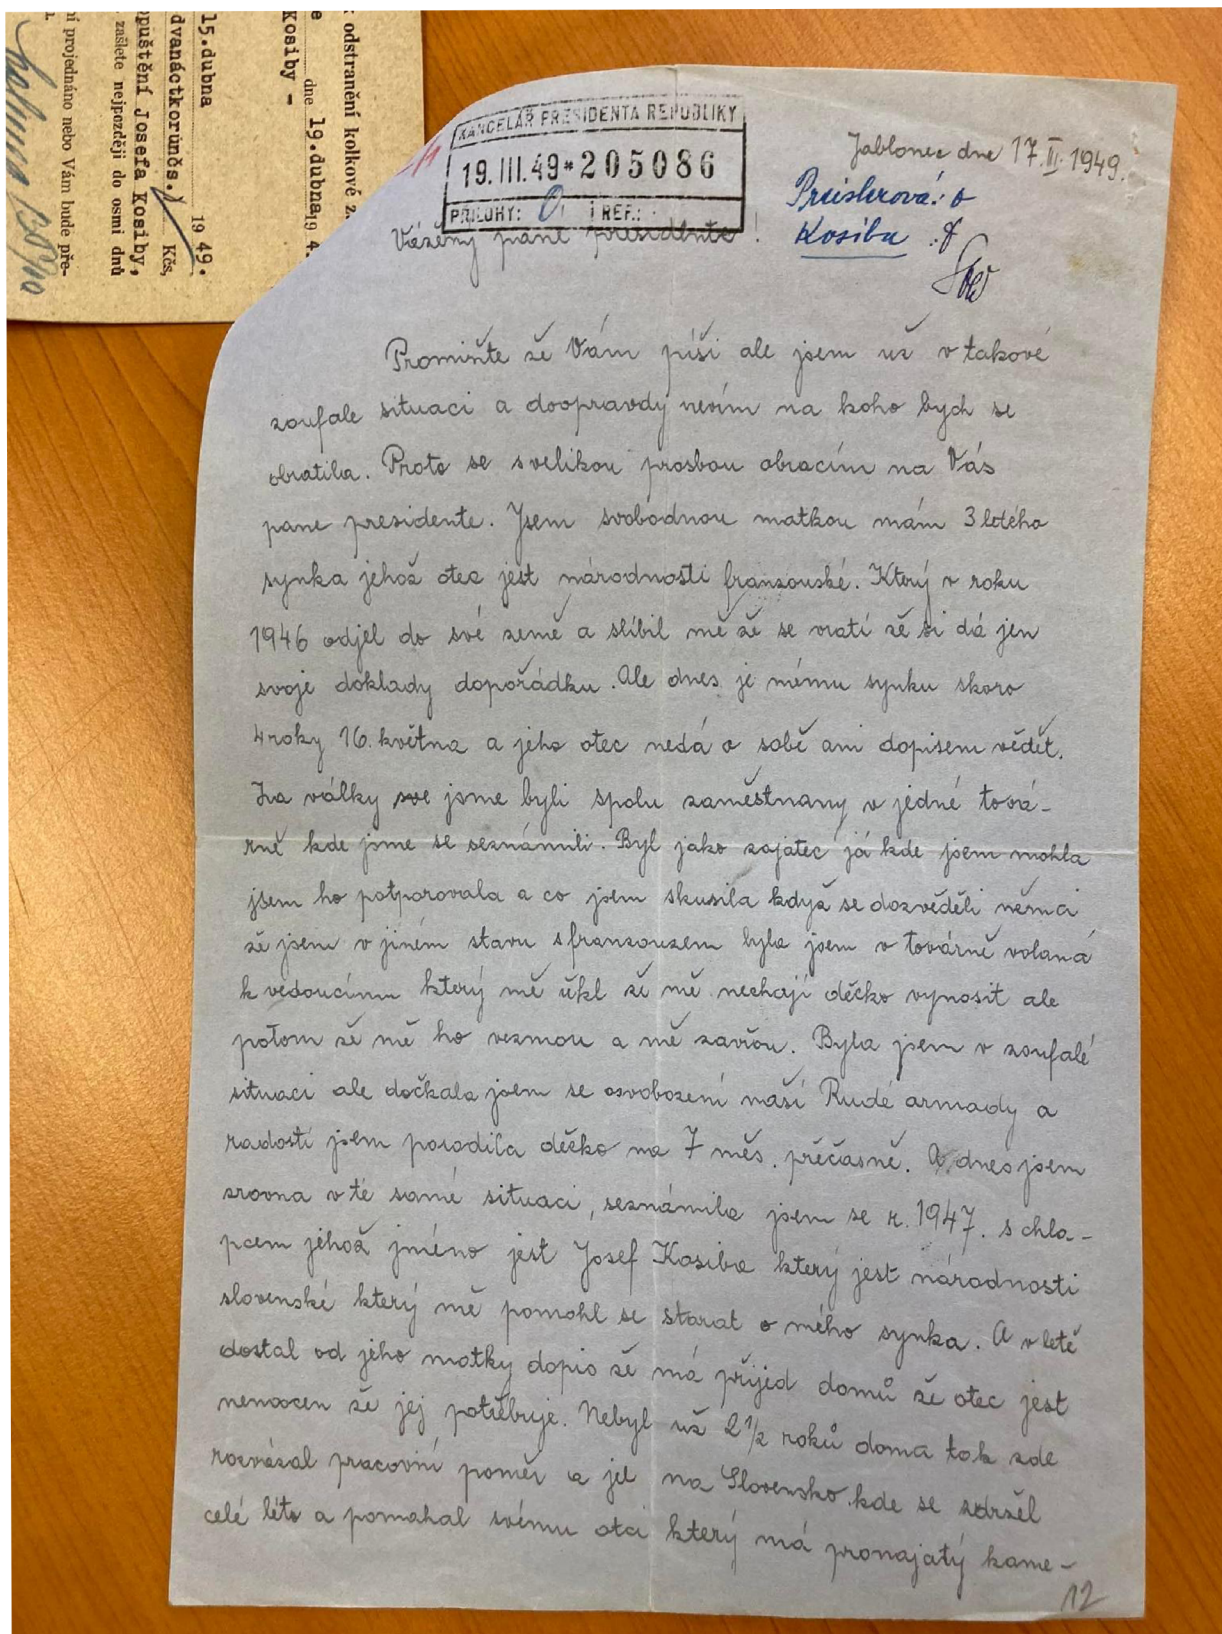 odstranění kolkové z
e dne 19.dubna 19 4.
Kosiby -
15.dubna 1949.
dvanáctkorunčs. Kčs,
puštění Josefa Kosiby,
zašlete nejpozději do osmi dnů
ní projednáno nebo Vám bude pře-
KANCELÁŘ PRESIDENTA REPUBLIKY
19.III.49*205086
PŘÍLOHY: 0 REF.:
Jablonec dne 17.III.1949.
Preislerová: o
Kosiba :
Vážený pane presidente!
Promiňte že Vám píši ale jsem už v takové
zoufale situaci a doopravdy nevím na koho bych se
obratila. Proto se s velikou prosbou obracím na Vás
pane presidente. Jsem svobodnou matkou mám 3 letého
synka jehož otec jest národnosti franzouské. Který v roku
1946 odjel do své země a slíbil mě že se vratí že si dá jen
svoje doklady dopořádku. Ale dnes je mému synku skoro
4 roky 16. května a jeho otec nedá o sobě ani dopisem vědět.
Za války jsme byli spolu zaměstnany v jedné tová-
rně kde jsme se seznámili. Byl jako zajatec já kde jsem mohla
jsem ho potporovala a co jsem skusila když se dozvěděli němci
že jsem v jiném stavu s franzouzem byla jsem v továrně volaná
k vedoucímu který mě řekl že mě nechají děcko vynosit ale
potom že mě ho vezmou a mě zavřou. Byla jsem v zoufalé
situaci ale dočkala jsem se osvobození naší Rudé armady a
radostí jsem porodila děcko na 7 měs. přěčasně. A dnes jsem
zrovna v té samé situaci, seznámila jsem se r. 1947. s chla-
pcem jehož jméno jest Josef Kosiba který jest národnosti
slovenské který mě pomohl se starat o mého synka. A v letě
dostal od jeho matky dopis že má přijed domů že otec jest
nemocen že jej potřebuje. Nebyl už 2 1/2 roků doma tak zde
rozvázal pracovní poměr a jel na Slovensko kde se zdržel
celé léto a pomahal svému otci který má pronajatý kame-
12